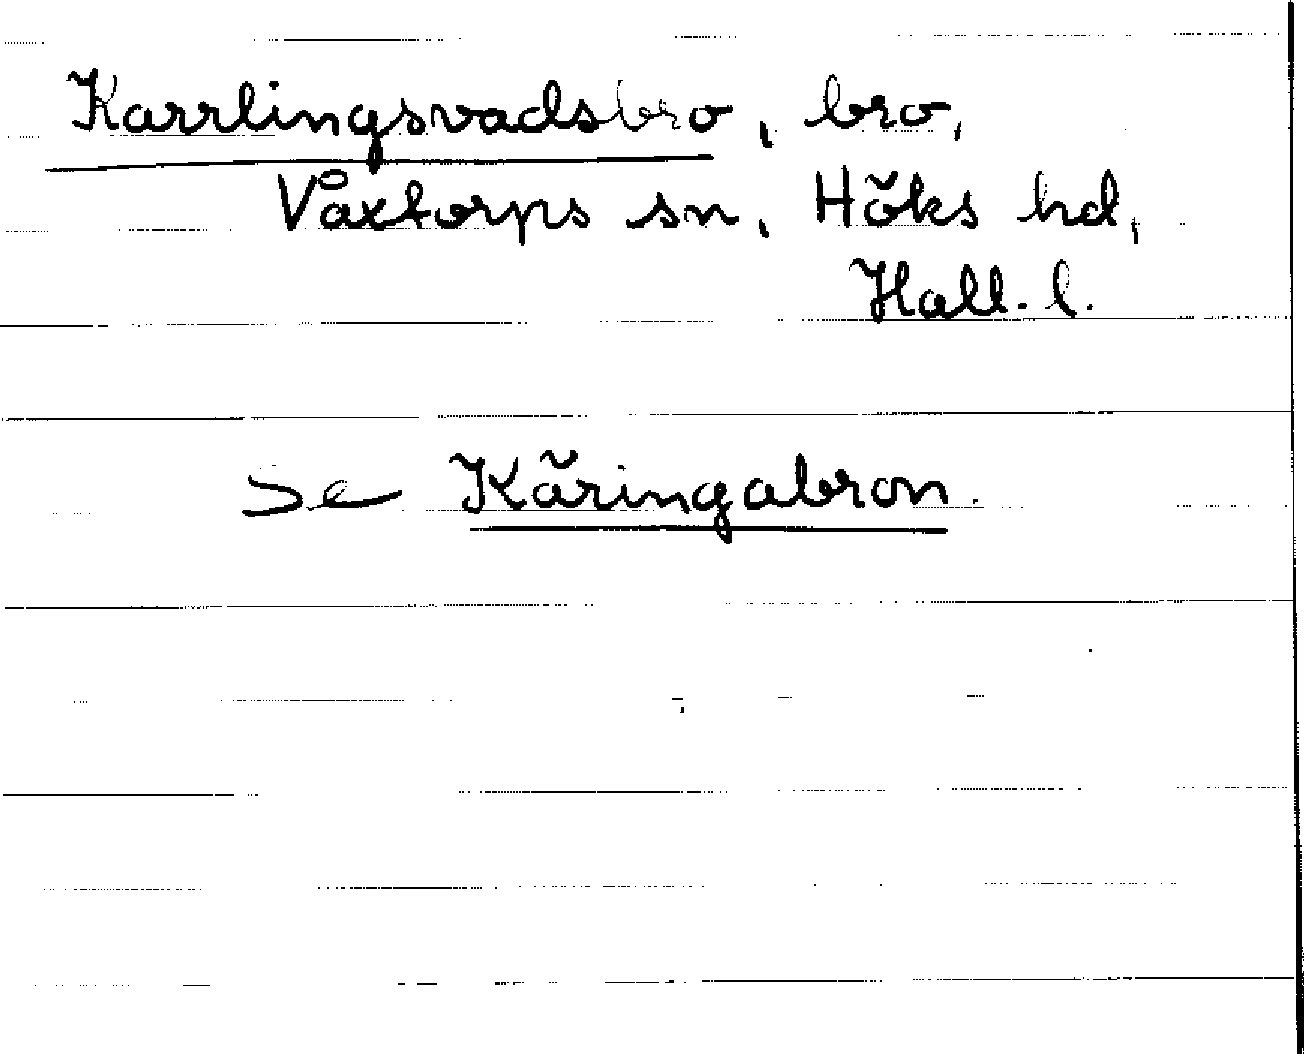 Karrlingsvadsbro, bro,
Våxtorps sn, Höks hd,
Hall. l.
se Käringabron.